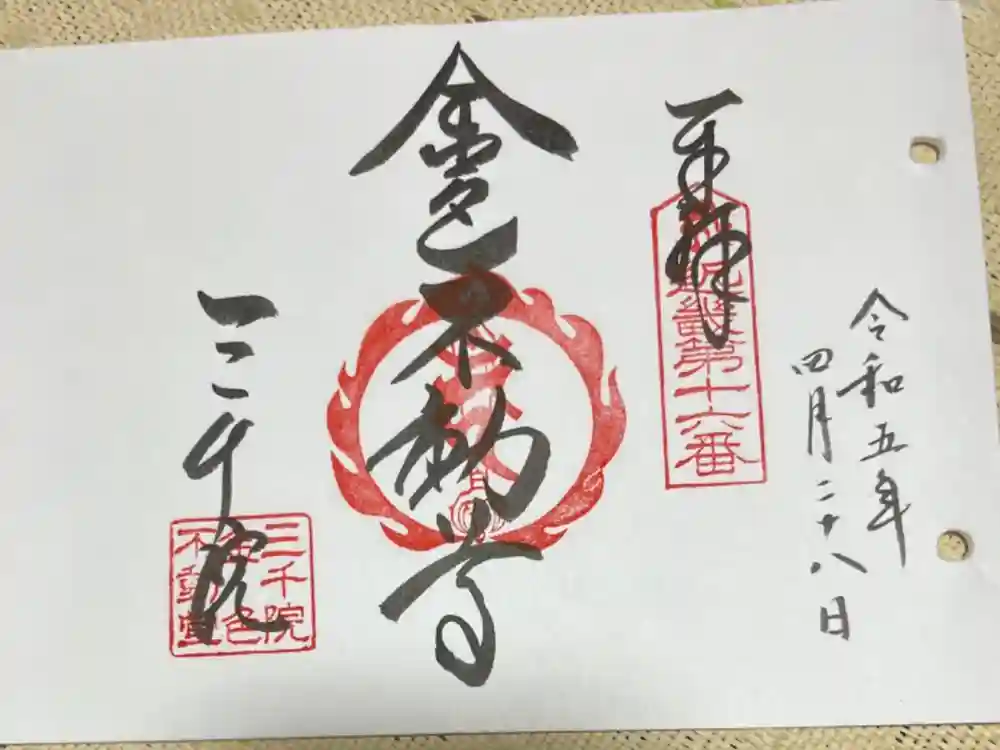 奉拝
近畿第十六番
令和五年
四月二十八日
金色不動尊
三千院
三千院
金色
不動堂